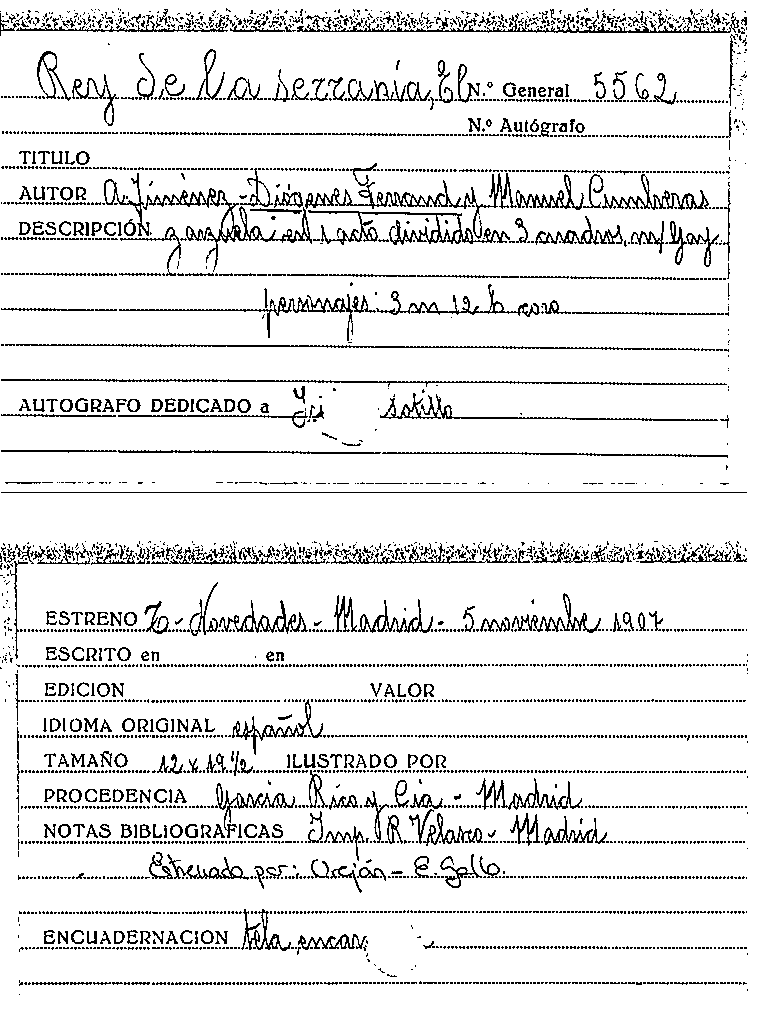 Rey de la serranía, El N.º General 5562
N.º Autógrafo
TITULO
AUTOR A. Jiménez - Diógenes Ferrand y Manuel Cumbreras
DESCRIPCIÓN zarzuela en 1 acto dividido en 3 cuadros, m/ Gay
personajes: 3 m 12 h coro
AUTOGRAFO DEDICADO a Sotillo
ESTRENO T- Novedades - Madrid - 5 noviembre 1907
ESCRITO en en
EDICION VALOR
IDIOMA ORIGINAL español
TAMAÑO 12 x 19 1/2 ILUSTRADO POR
PROCEDENCIA Garcia Rico y Cia - Madrid
NOTAS BIBLIOGRAFICAS Imp. R. Velasco - Madrid
Estrenada por: Orejón - E. Gallo.
ENCUADERNACION tela encar